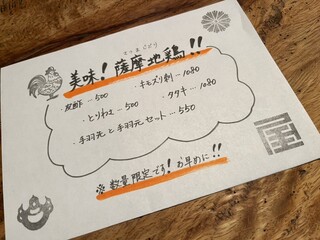 さつまじどり
美味！薩摩地鶏！！
・皮酢…500
・キモズリ刺…1080
・とりわさ…500
・タタキ…1080
・手羽先と手羽元セット…550
※数量限定です！お早めに！！